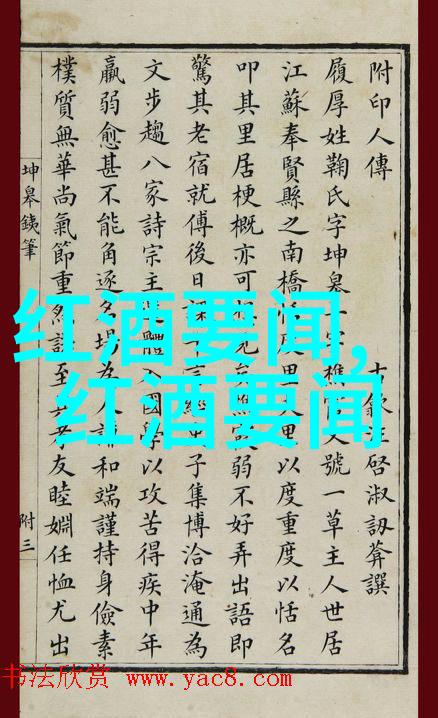 附印人傳 古歙汪啓淑訒葊譔
履厚姓鞠氏字坤皋一字樵號一草主人世居
江蘇奉賢縣之南橋里以度重度以恬名
叩其里居梗概亦可弱不好弄出語即
驚其老宿就傅後日子集博洽淹通為
文步趨八家詩宗主體國學以攻苦得疾中年
羸弱愈甚不能角逐名場為人謙和端謹持身儉素
樸質無華尚氣節重然至孝友睦婣任恤尤出
坤皋銕筆
附三
红酒要闻,
红酒要闻
书法欣赏 www.yac8.com